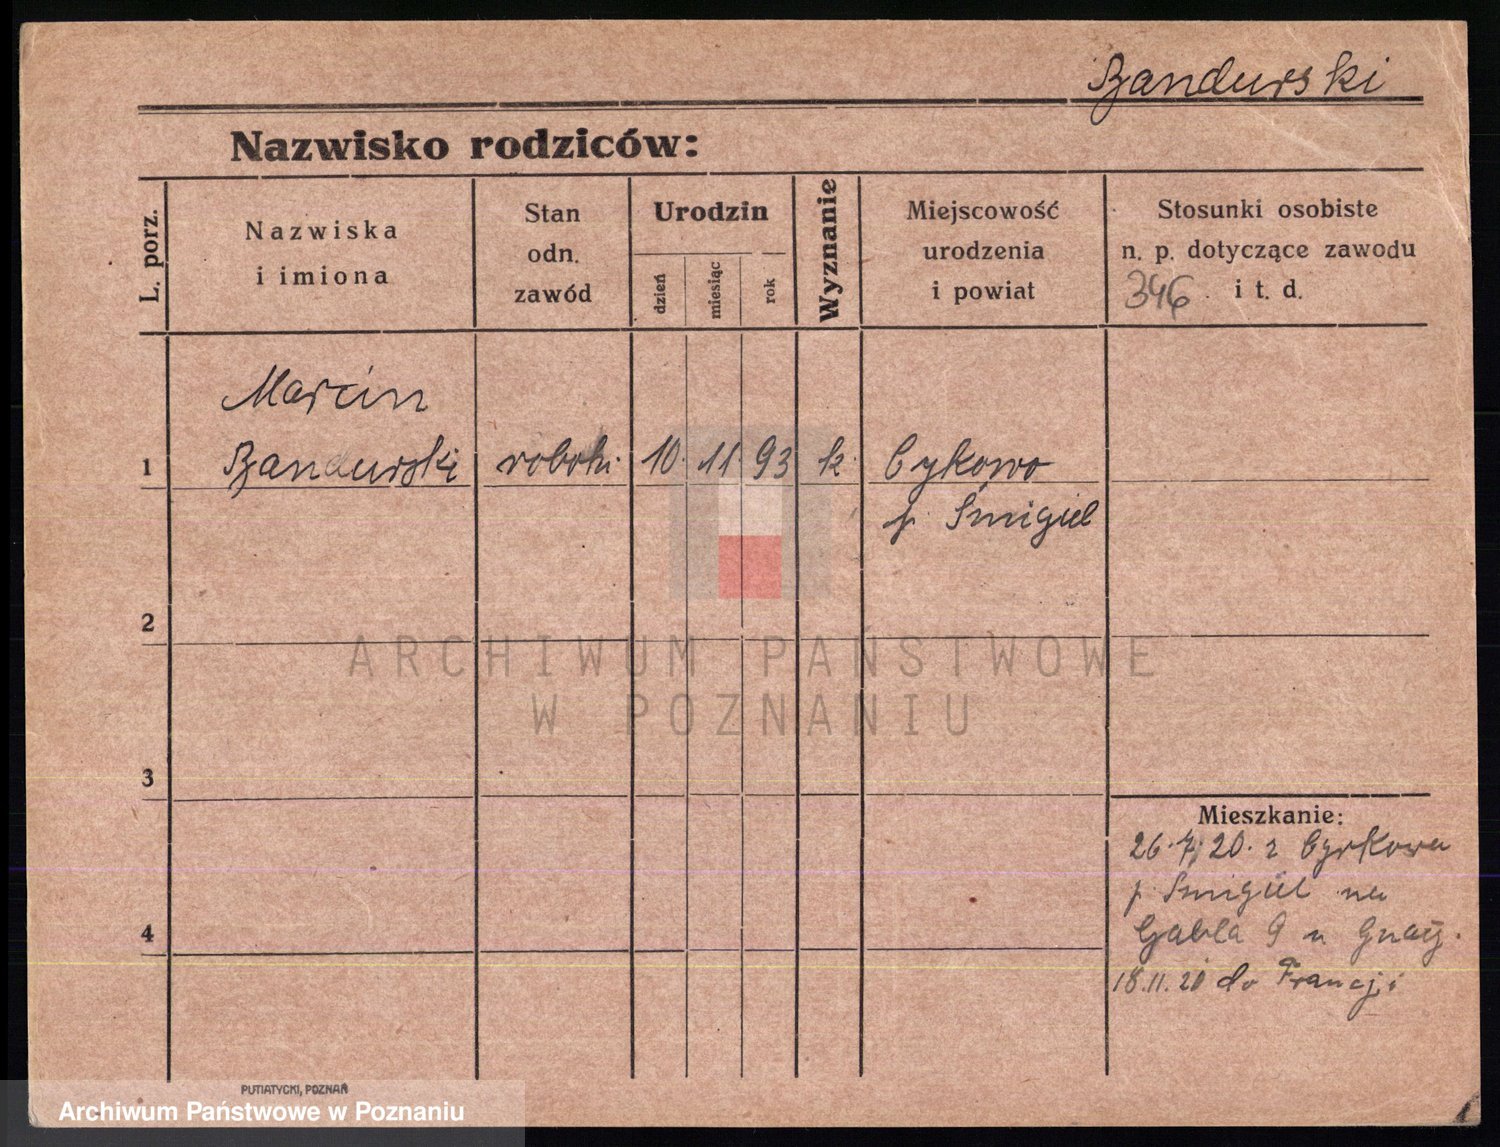 Bandurski
Nazwisko rodziców:
L. porz.
Nazwiska
i imiona
Stan
odn.
zawód
Urodzin
dzień
miesiąc
rok
Wyznanie
Miejscowość
urodzenia
i powiat
Stosunki osobiste
n. p. dotyczące zawodu
346 i t. d.
Marcin
1 Bandurski robotn. 10. 11. 93 k. Cykowo
p. Śmigiel
2
ARCHIWUM PAŃSTWOWE
W POZNANIU
3
Mieszkanie:
26.7.20. z
p. Śmigiel na
4 9 u
18.11.20 do Francji
PUTIATYCKI, POZNAŃ
Archiwum Państwowe w Poznaniu